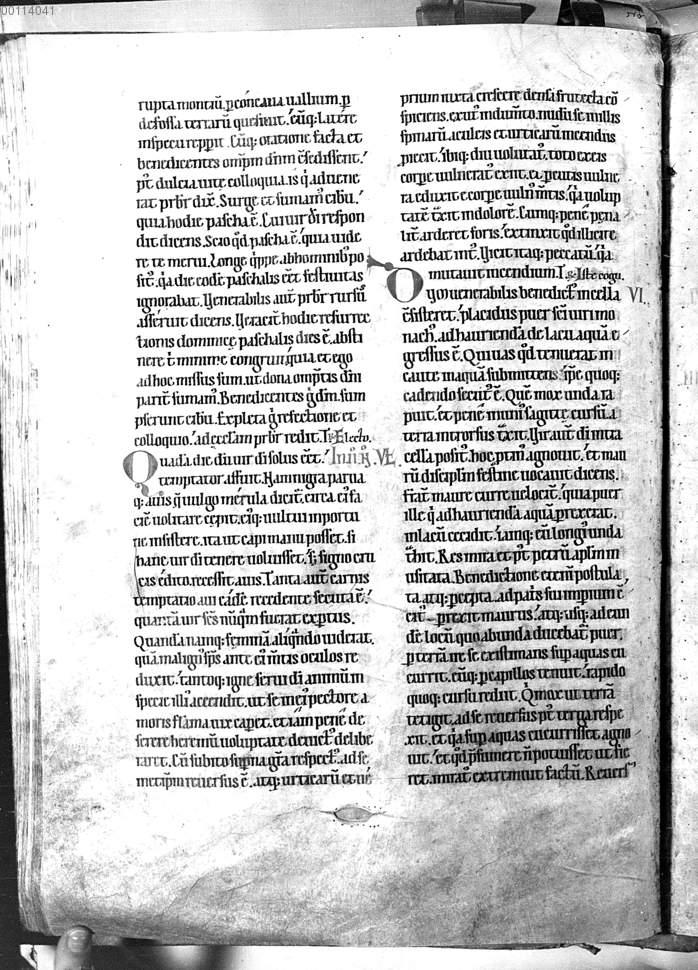 00114041
rupta montiū. ꝑ concaua uallium. ꝑ
defossa terrarū quesiuit. Cūq; latere
in specu repꝑit. Cūq; oratione facta et
benedicentes omīpm dn̄m cōsedissent.
pꝰ dulcia uite colloquia. is q̇ aduene
rat pr̄br dix̄. Surge et sumam cibū.
quia hodie pascha ē. Cui uir dī respon
dit dicens. Scio qd̄ pascha ē. quia uide
re te merui. Longe q̇ppe ab hominibꝰ po
sitꝰ. qa die eodē paschalis eēt festiuitas
ignorabat. Uenerabilis aūt pr̄br rursū
asseruit dicens. Ueracit̄ hodie resurrec
tionis dominice paschalis dies ē. absti
nere t̄ minime congruit. quia et ego
ad hoc missus sum. ut dona omīptis dn̄i
parit̄ sumamꝰ. Benedicentes g̊ dn̄m. sum
pserunt cibū. Expleta g̊ refectione et
colloquio. ad ecclam pr̄br rediit.
Quada die dū uir dī solus eēt.
temptator affuit. Nam nigra parua
q; auis q̄ uulgo merula dicit̄. circa ei fa
ciē uolitare cepit. eiq; uultui importu
ne insistere. ita ut capi manu posset. si
hanc uir dī tenere uoluisset. Sꝫ signo cru
cis edito. recessit auis. Tanta aūt carnis
temptatio aui eadē recedente secuta ē.
quantā uir sc̄s nūq̄m fuerat exptus.
Quandā namq; feminā aliqn̄do uiderat.
quā malignꝰ sp̄s ante ei mītis oculos re
duxit. tantoq; igne serui dī animum
specie illiꝰ accendit. ut se in eiꝰ pectore a
moris flāma uix caperet. et iam pene de
serere heremū uoluptate deuictꝰ delibe
raret. Cū subito suꝑna gr̄a respectꝰ. ad se
metipm reuersus ē. atq; urticarū et ue
prium iuxta crescere densa frutecta cō
spiciens. exutꝰ indumto. nudū se in illis
spinarū aculeis et urticarū incendiis
piecit. ibiq; diu uolutatꝰ. toto ex eis
corpe uulneratꝰ exiit. et ꝑ cutis uulne
ra eduxit e corpe uulnꝰ mītis. qa uolup
tatē t̄xit in dolorē. Cumq; pene pena
lit̄ arderet foris. extinxit qd̄ illicite
ardebat intꝰ. Uicit itaq; peccatū. qa
mutauit incendium.
Quodā die dū idē uenerabilis benedictꝰ in cella VI.
cōsisteret. placidus puer sc̄i uiri mo
nachꝰ. ad hauriendā de lacu aquā e
gressus ē. Qui uas qd̄ tenuerat in
caute in aquā submittens. ipe quoq;
cadendo secutꝰ ē. Quē mox unda ra
puit. et pene ad uniꝰ sagitte cursū a
terra introrsus t̄xit. Uir aūt dī intra
cellā positꝰ. hoc ptinꝰ agnouit. et mau
rū disciplm̄ festine uocauit dicens.
Frat̄ maure curre uelocit̄. quia puer
ille q̇ ad hauriendā aquā prexerat.
in lacū cecidit. iamq; eū longiꝰ unda
t̄hit. Res mira et pꝰ petrū aplm in
usitata. Benedictione etenī postula
ta atq; pcepta. ad patis sui impium c̄
citꝰ ꝑrexit maurus. atq; usq; ad eun
dē locū quo ab unda ducebat̄ puer.
ꝑ terrā se ire existimans suꝑ aquas cu
currit. eūq; ꝑ capillos tenuit. rapido
quoq; cursu rediit. Qi mox ut terrā
tetigit. ad se reuersus pꝰ terga respe
xit. et qa suꝑ aquas cucurrisset agno
uit. et qd̄ ꝑsumere n̄ potuisset ut fie
ret. miratꝰ extremuit factū. Reuersꝰ